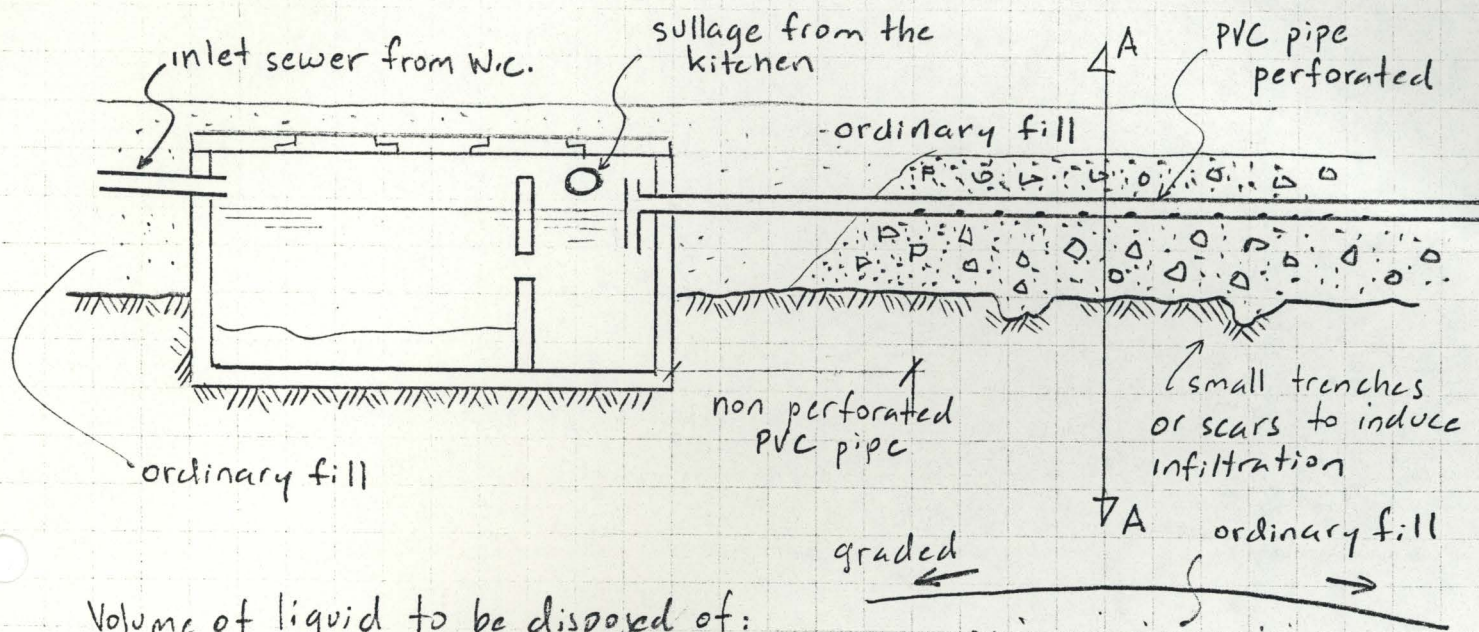 inlet sewer from W.C.
sullage from the
kitchen
A
PVC pipe
perforated
ordinary fill
non perforated
PVC pipe
small trenches
or scars to induce
infiltration
ordinary fill
A
graded
ordinary fill
Volume of liquid to be disposed of: